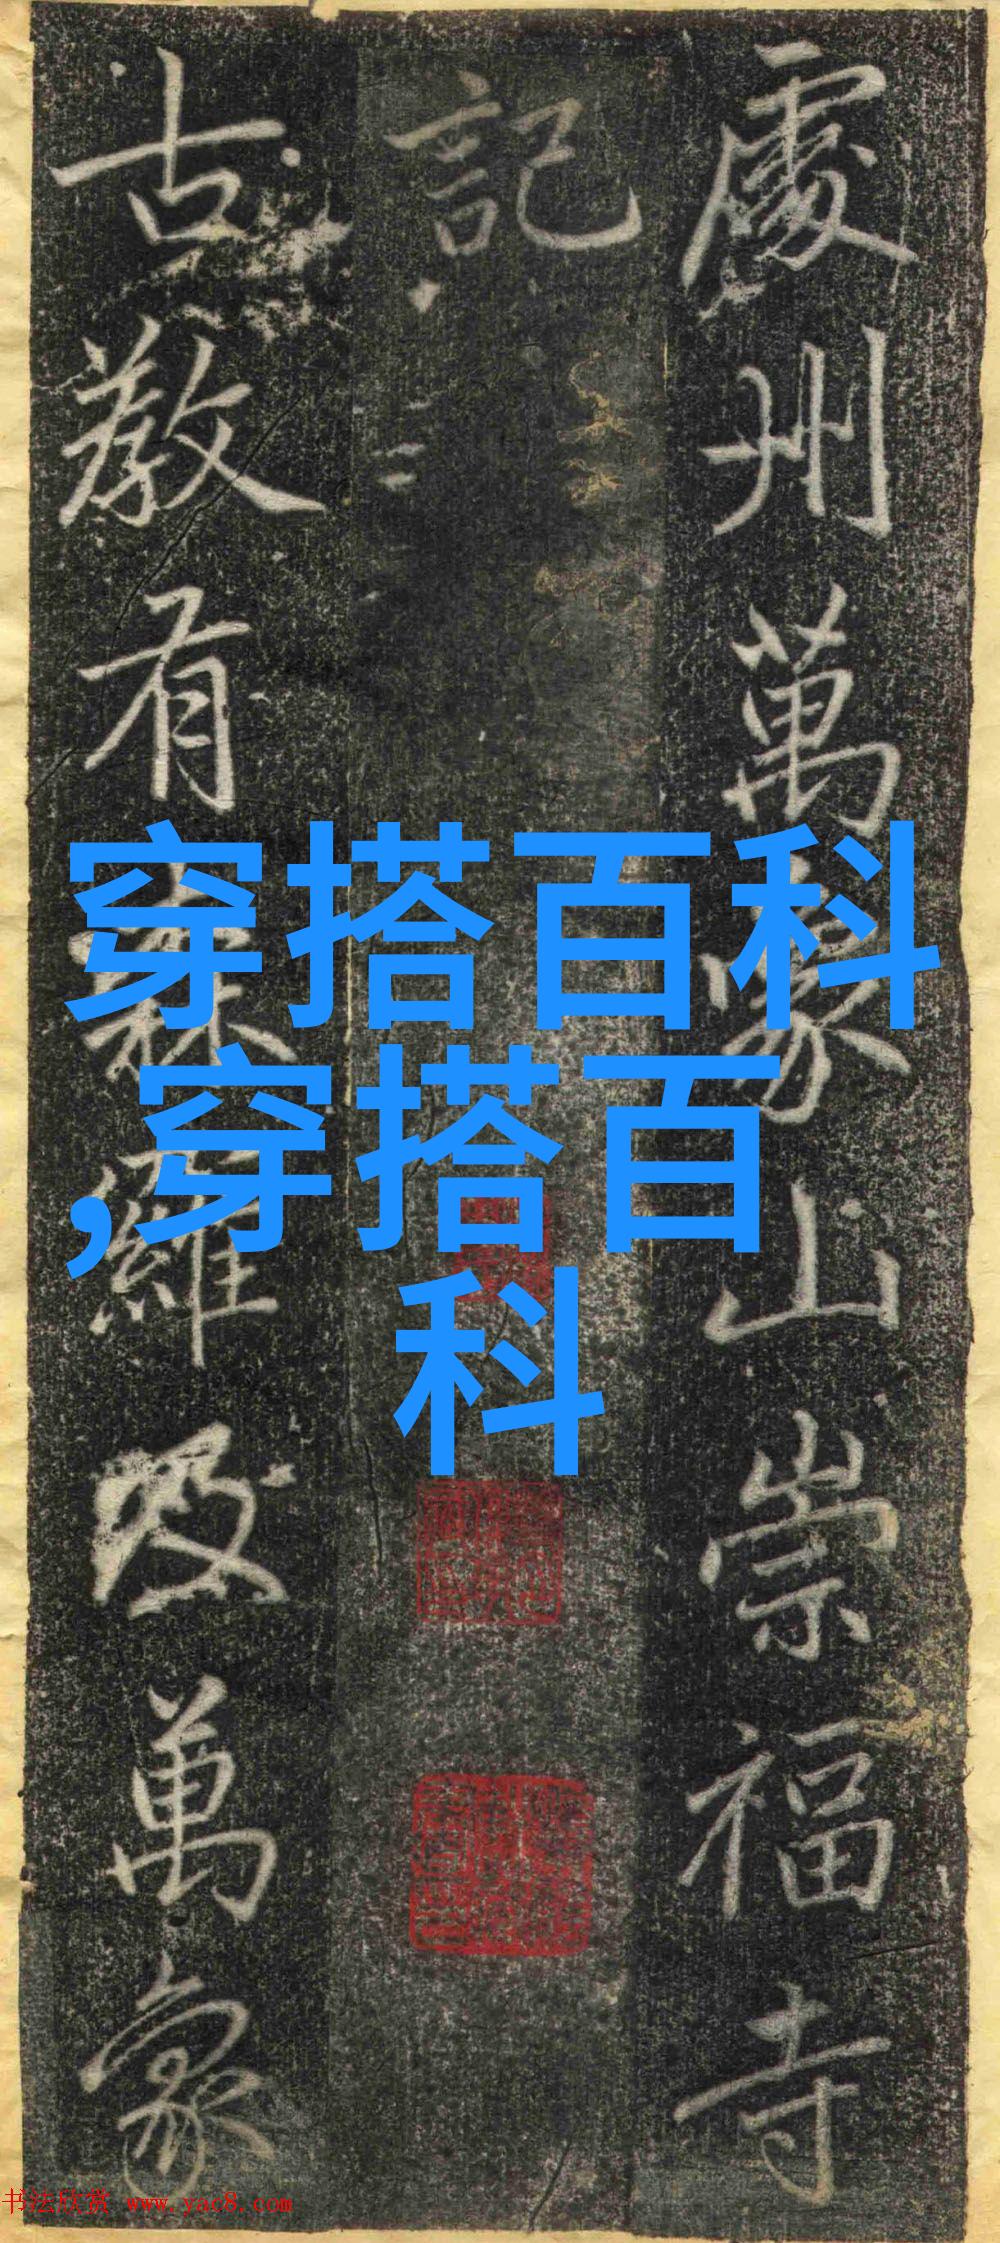 處州萬象山崇福寺
記
古教有森羅及萬象
穿搭百科
,穿搭百
科
书法欣赏 www.yac8.com